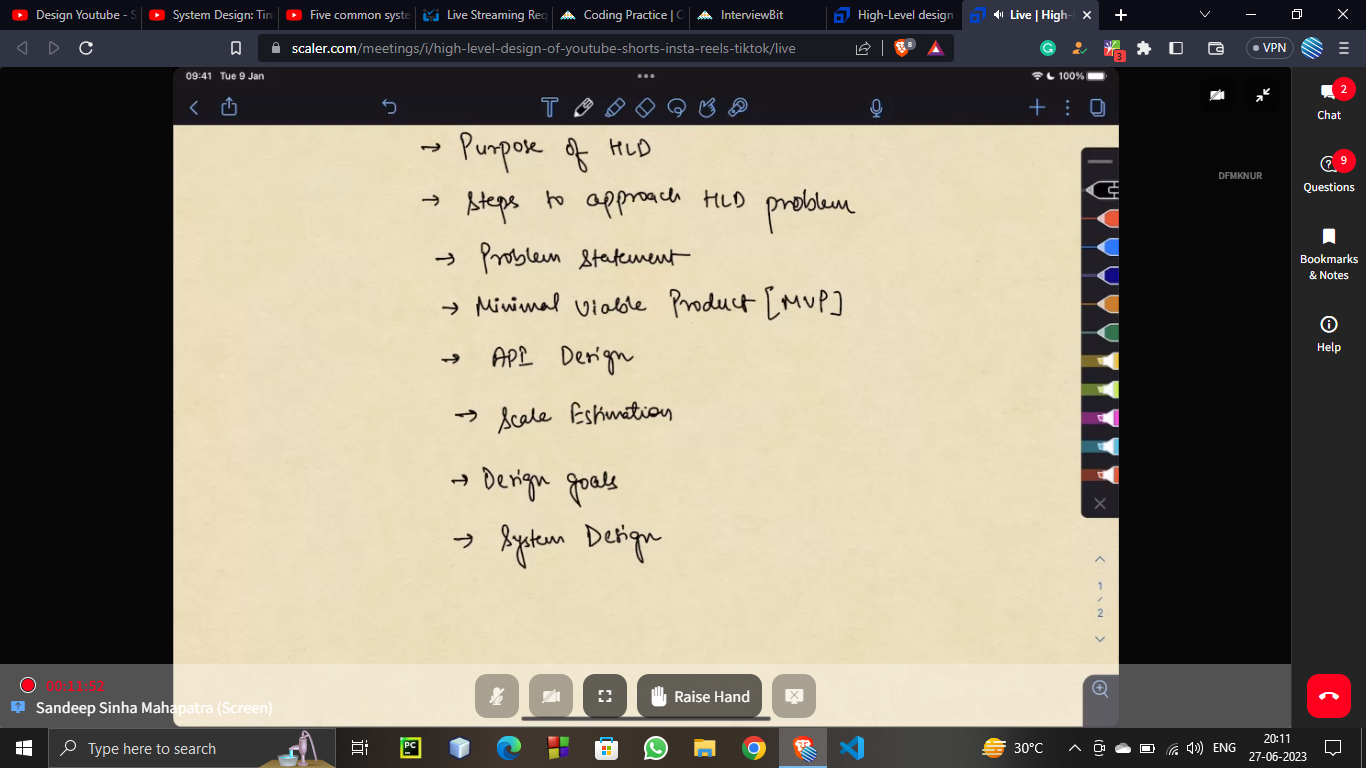 Design Youtube - S
System Design: Tin
Five common syste
Live Streaming Req
Coding Practice | C
InterviewBit
High-Level design
Live | High-
scaler.com/meetings/i/high-level-design-of-youtube-shorts-insta-reels-tiktok/live
8
3
VPN
09:41 Tue 9 Jan
100%
→ Purpose of HLD
→ Steps to approach HLD problem
→ Problem Statement
→ Minimal Viable Product [MVP]
→ API Design
→ Scale Estimation
→ Design goals
→ System Design
1
/
2
DFMKNUR
2
Chat
9
Questions
Bookmarks
& Notes
Help
00:11:52
Sandeep Sinha Mahapatra (Screen)
Raise Hand
Type here to search
PC
30°C
ENG
20:11
27-06-2023